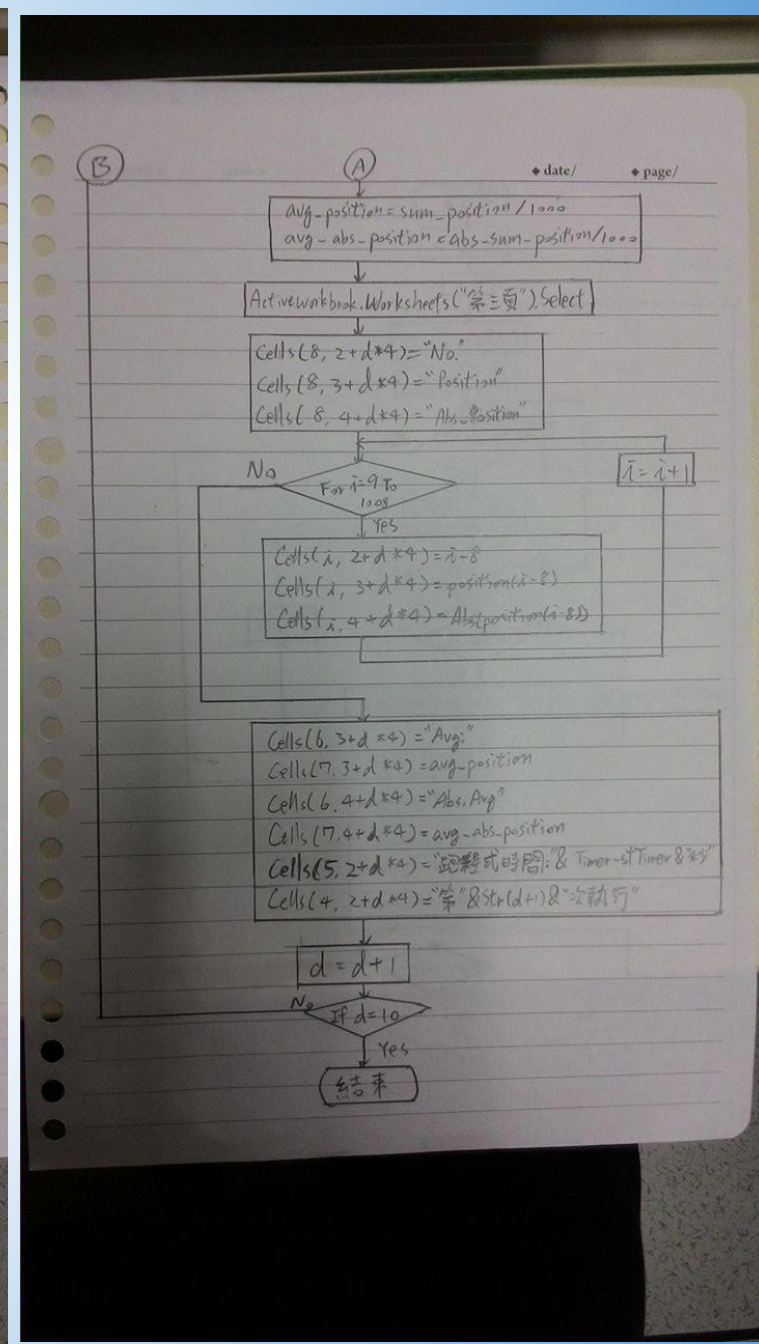 B
A
◆ date/ ◆ page/
avg-position = sum-position / 1000
avg-abs-position = abs-sum-position/1000
Activeworkbook.Worksheets("第三頁").Select
Cells(8, 2+d*4)="No."
Cells(8, 3+d*4)="Position"
Cells(8, 4+d*4)="Abs_Position"
No
For i=9 To
1008
i = i+1
Yes
Cells(i, 2+d*4)=i-8
Cells(i, 3+d*4)=position(i-8)
Cells(i, 4+d*4)=Abs(position(i-8))
Cells(6, 3+d*4)="Avg:"
Cells(7, 3+d*4)=avg-position
Cells(6, 4+d*4)="Abs. Avg"
Cells(7, 4+d*4)=avg-abs-position
Cells(5, 2+d*4)="跑程式時間:"& Timer-stTimer &"秒"
Cells(4, 2+d*4)="第"&Str(d+1)&"次執行"
d = d+1
No
If d=10
Yes
結束